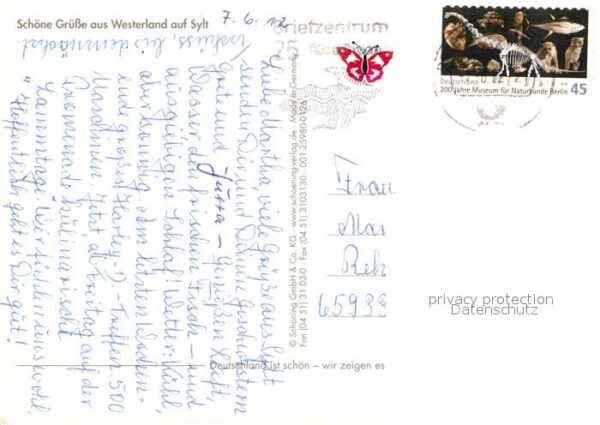 Schöne Grüße aus Westerland auf Sylt
7. 6. 12
Tschüss, bis demnächst
Liebe Martha, viele Grüße aus Sylt
senden Dir und Deinen Geschwistern
Gert und Jutta – Genießen Luft,
Wasser den frischen Fisch – und
ausgiebigen Schlaf! Wetter: Kühl,
aber sonnig. Am letzten Wochen-
ende großes Harley-D.-Treffen 500
Maschinen. Jetzt, ab Freitag auf der
Promenade kulinarische
Wir fühlen uns wohl.
"Hoffentlich geht es Dir gut!
© Schöning GmbH & Co. KG · www.schoening-verlag.de · Made in Germany
Fon (04 51) 31 03-0 · Fax (04 51) 3103130 · 001-25980-0126
Deutschland ist schön – wir zeigen es
Briefzentrum
25
Deutschland
200 Jahre Museum für Naturkunde Berlin
45
Frau
Mar
Reh
65933
privacy protection
Datenschutz